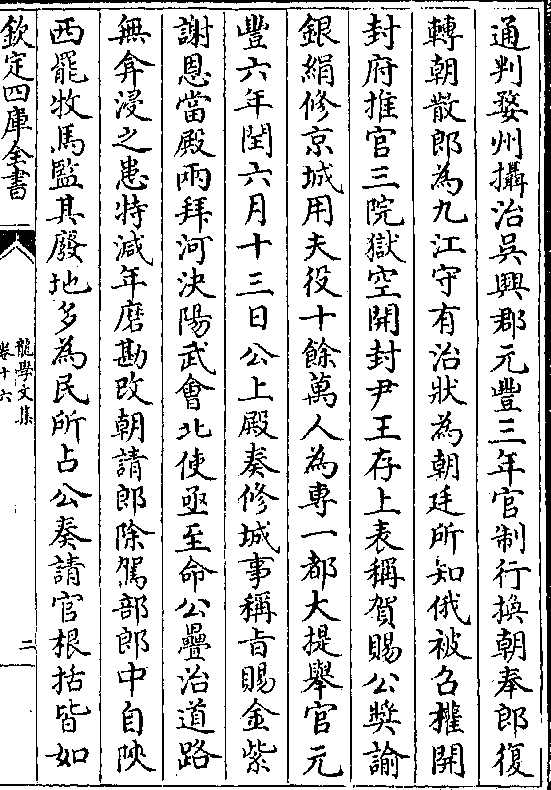 通判婺州攝治吳興郡元豐三年官制行換朝奉郎復
轉朝散郎為九江守有治狀為朝廷所知俄被召權開
封府推官三院獄空開封尹王存上表稱賀賜公獎諭
銀絹修京城用夫役十餘萬人為專一都大提舉官元
豐六年閏六月十三日公上殿奏修城事稱旨賜金紫
謝恩當殿兩拜河決陽武會北使亟至命公疊治道路
無弇浸之患特減年磨勘改朝請郎除駕部郎中自陝
西罷牧馬監其廢地多為民所占公奏請官根括皆如
欽定四庫全書
龍學文集
卷十六
二